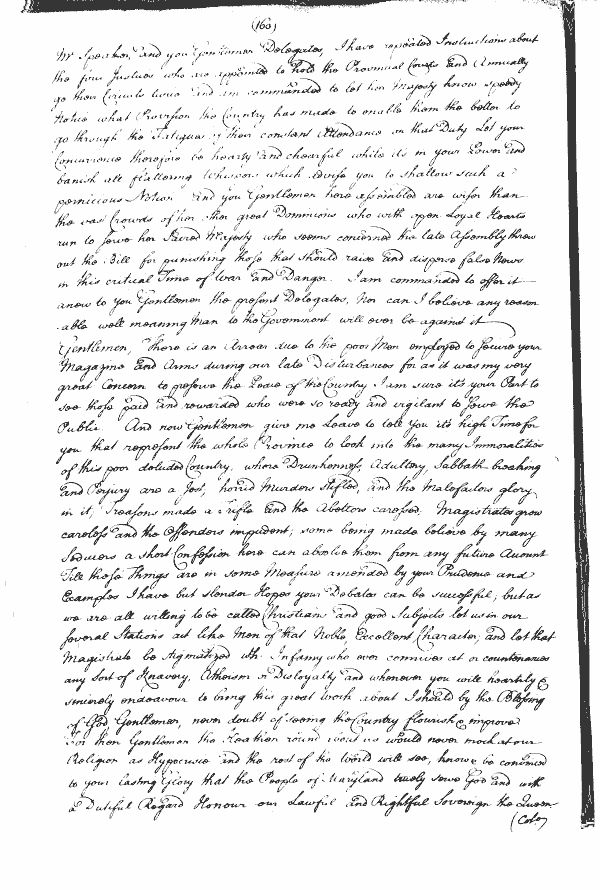 (160)
Mr Speaker, and you Gentlemen Delegates, I have repeated Instructions about
the four Justices who are appointed to hold the Provincial Courts and Annually
go their Circuits twice and am commanded to let her Majesty know speedy
Notice what Provision the Country has made to enable them the better to
go through the Fatigues of their constant Attendance on that Duty Let your
Concurrence therefore be hearty and chearful while its in your Power and
banish all flattering Whispers which advise you to shallow such a
pernicious Notion and you Gentlemen here assembled are wiser than
the vast Crowds of her other great Dominions who with open Loyal Hearts
run to serve her Sacred Majesty who seems concerned the late Assembly threw
out the Bill for punishing those that should raise and disperse false News
in this critical Time of War and Danger. I am commanded to offer it
anew to you Gentlemen the present Delegates, Nor can I believe any reason
able well meaning Man to the Government will ever be against it
Gentlemen, There is an Arrear due to the poor Men employed to secure your
Magazine and Arms during our late Disturbances for as it was my very
great Concern to preserve the Peace of the Country I am sure it's your Part to
see those paid and rewarded who were so ready and vigilant to serve the
Public. And now Gentlemen give me Leave to tell you it's high Time for
you that represent the whole Province to look into the many Immoralities
of this poor deluded Country, where Drunkenness, Adultery, Sabbath breaking
and Perjury are a Jest, horrid Murders stifled, and the Malefactors glory
in it, Treasons made a Trifle and the Abettors caressed. Magistrates grow
careless and the Offenders impudent; some being made believe by many
Seducers a short Confession here can absolve them from any future Account
Till those Things are in some Measure amended by your Prudence and
Examples I have but slender Hopes your Debates can be successful; but as
we are all willing to be called Christians and good Subjects let us in our
several Stations act like Men of that Noble Excellent Character, and let that
Magistrate be stigmatized wth Infamy who ever connives at or countenances
any Sort of Knavery, Atheism or Disloyalty and whenever you will heartily &
sincerely endeavour to bring this great work about I should by the Blessing
of God Gentlemen, never doubt of seeing the Country flourish & improve
For then Gentlemen the Heathen round about us would never mock at our
Religion as Hypocrisie and the rest of the World will see, know & be convinced
to your lasting Glory that the People of Maryland truely serve God and with
a Dutiful Regard Honour our Lawful and Rightful Sovereign the Queen